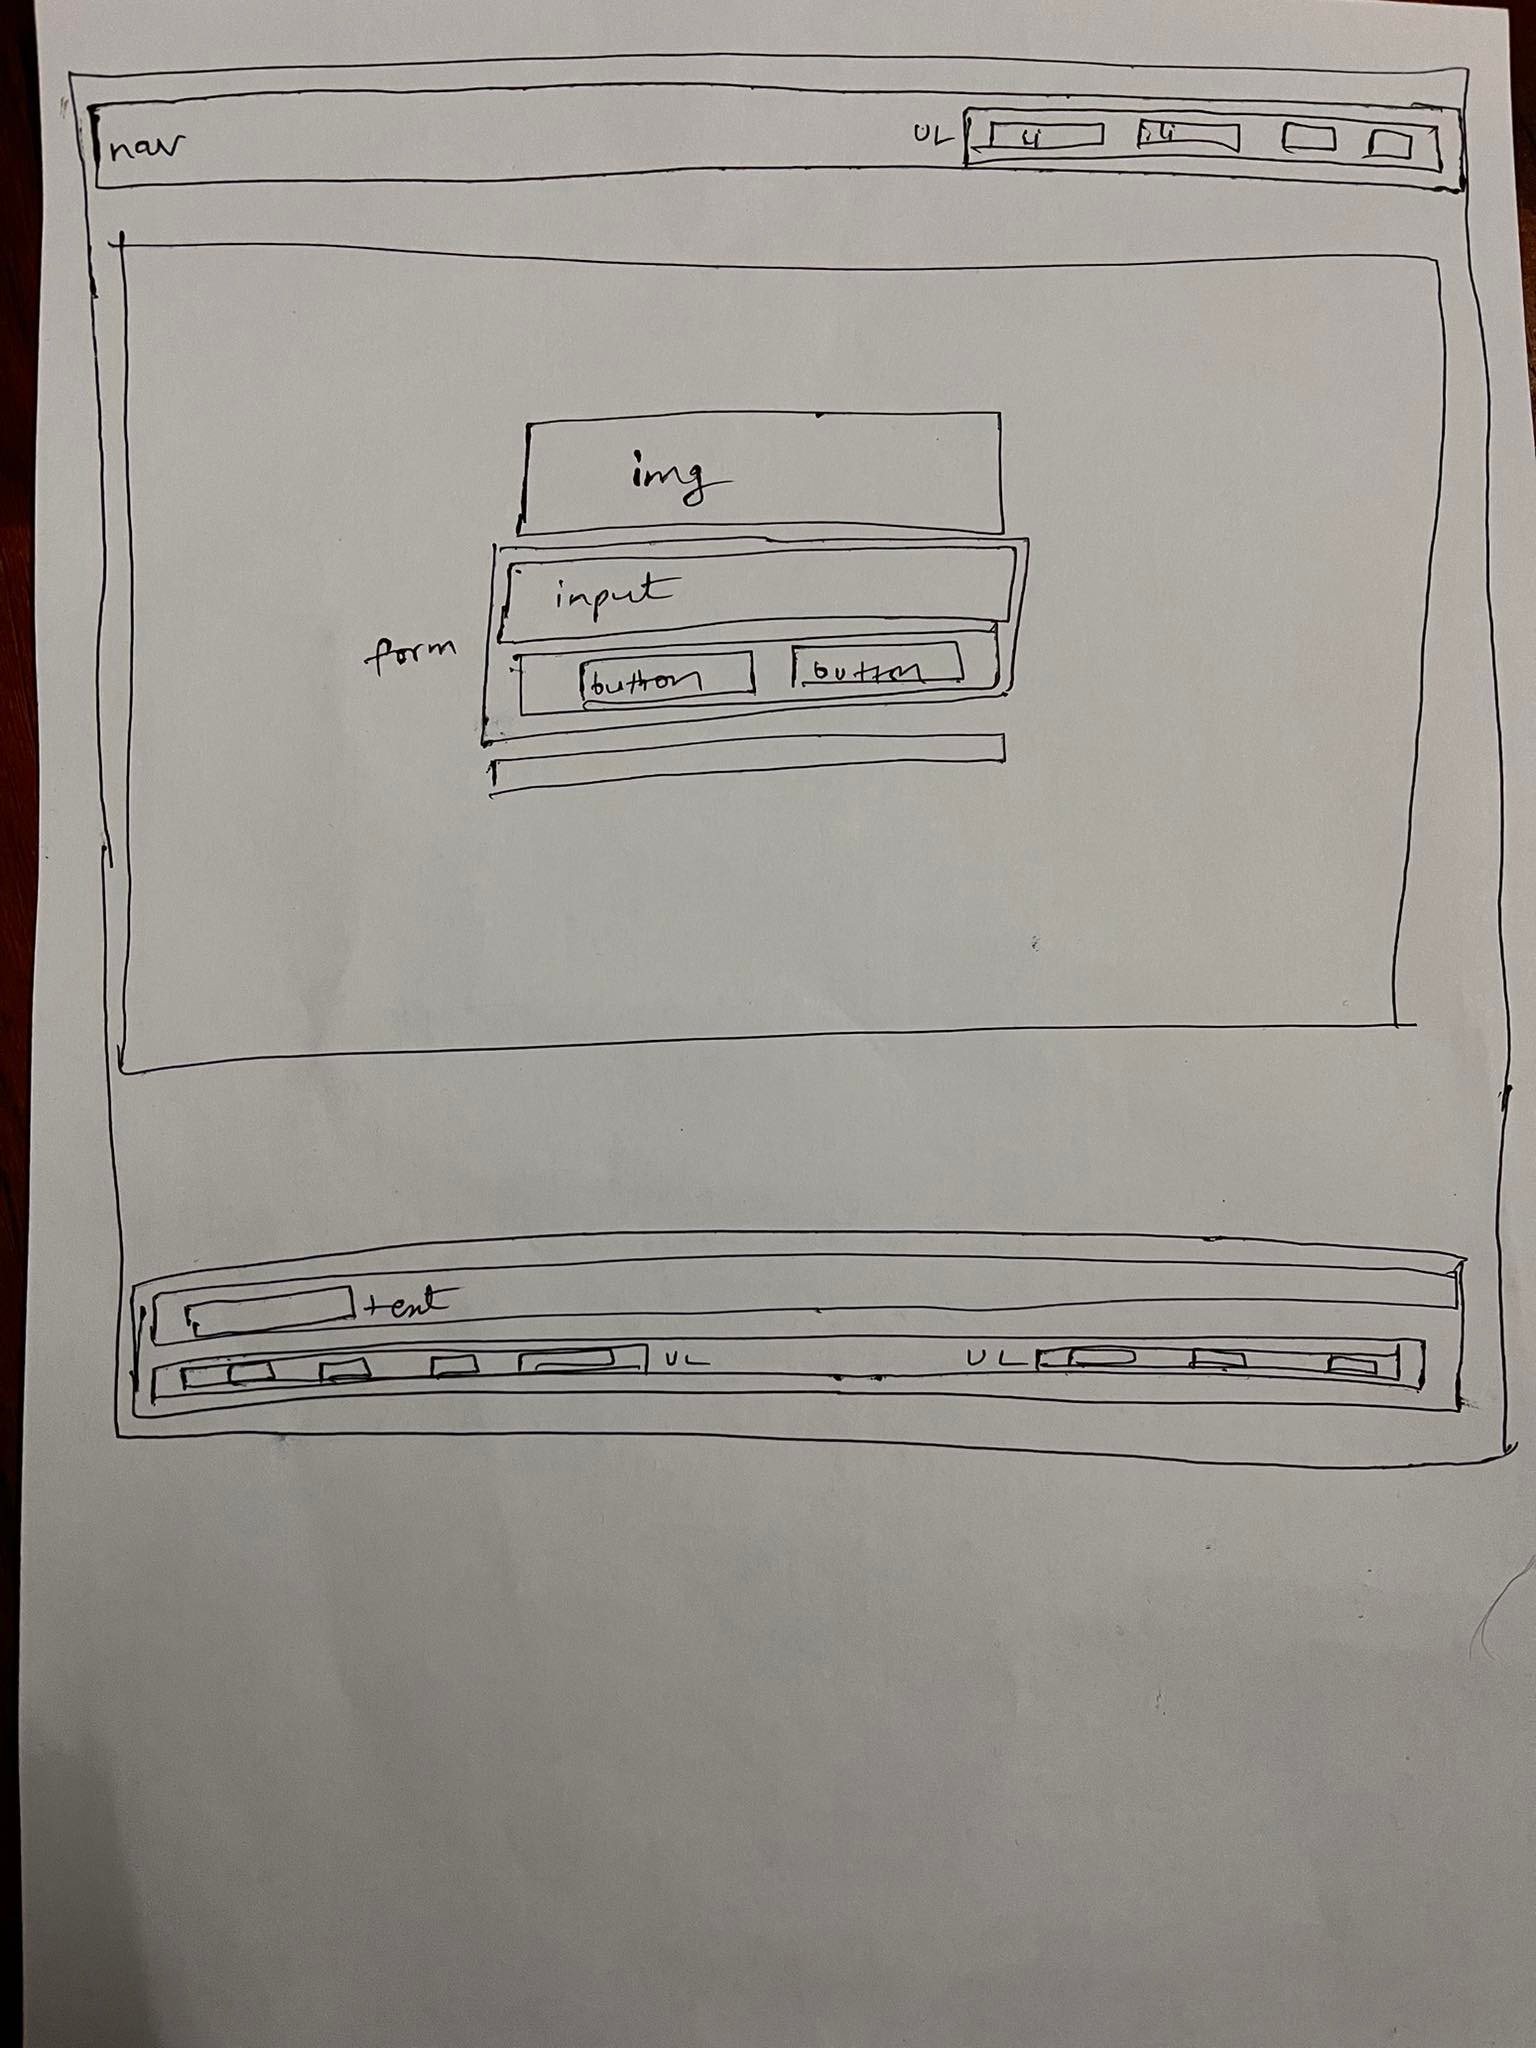 nav
UL
li
li
img
input
form
button
button
text
UL
UL